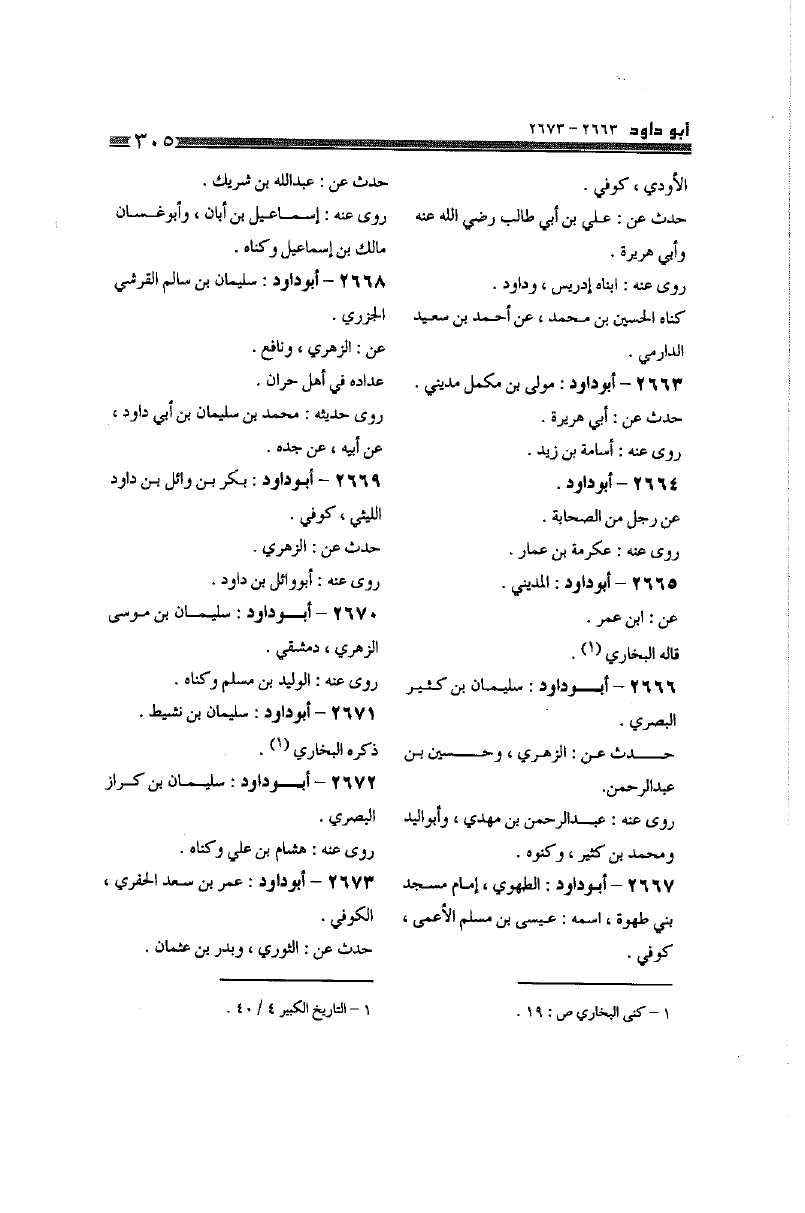 أبو داود ٢٦٦٣ - ٢٦٧٣
٣٠٥
الأودي ، كوفي .
حدث عن : علي بن أبي طالب رضي الله عنه
وأبي هريرة .
روى عنه : ابناه إدريس ، وداود .
كناه الحسين بن محمد ، عن أحمد بن سعيد
الدارمي .
٢٦٦٣ - أبوداود : مولى بن مكمل مديني .
حدث عن : أبي هريرة .
روى عنه : أسامة بن زيد .
٢٦٦٤ - أبوداود .
عن رجل من الصحابة .
روى عنه : عكرمة بن عمار .
٢٦٦٥ - أبوداود : المديني .
عن : ابن عمر .
قاله البخاري (١) .
٢٦٦٦ - أبــوداود : سليمان بن كثير
البصري .
حــدث عن : الزهري ، وحــسين بن
عبدالرحمن.
روى عنه : عبدالرحمن بن مهدي ، وأبوالوليد
ومحمد بن كثير ، وكنوه .
٢٦٦٧ - أبوداود : الطهوي ، إمام مسجد
بني طهوة ، اسمه : عيسى بن مسلم الأعمى ،
كوفي .
١ - كنى البخاري ص : ١٩ .
حدث عن : عبدالله بن شريك .
روى عنه : إسماعيل بن أبان ، وأبوغسان
مالك بن إسماعيل وكناه .
٢٦٦٨ - أبوداود : سليمان بن سالم القرشي
الجزري .
عن : الزهري ، ونافع .
عداده في أهل حران .
روى حديثه : محمد بن سليمان بن أبي داود ،
عن أبيه ، عن جده .
٢٦٦٩ - أبوداود : بكر بن وائل بن داود
الليثي ، كوفي .
حدث عن : الزهري .
روى عنه : أبووائل بن داود .
٢٦٧٠ - أبــوداود : سليمان بن موسى
الزهري ، دمشقي .
روى عنه : الوليد بن مسلم وكناه .
٢٦٧١ - أبوداود : سليمان بن نشيط .
ذكره البخاري (١) .
٢٦٧٢ - أبــوداود : سليمان بن كراز
البصري .
روى عنه : هشام بن علي وكناه .
٢٦٧٣ - أبوداود : عمر بن سعد الحفري ،
الكوفي .
حدث عن : الثوري ، وبدر بن عثمان .
١ - التاريخ الكبير ٤ / ٤٠ .